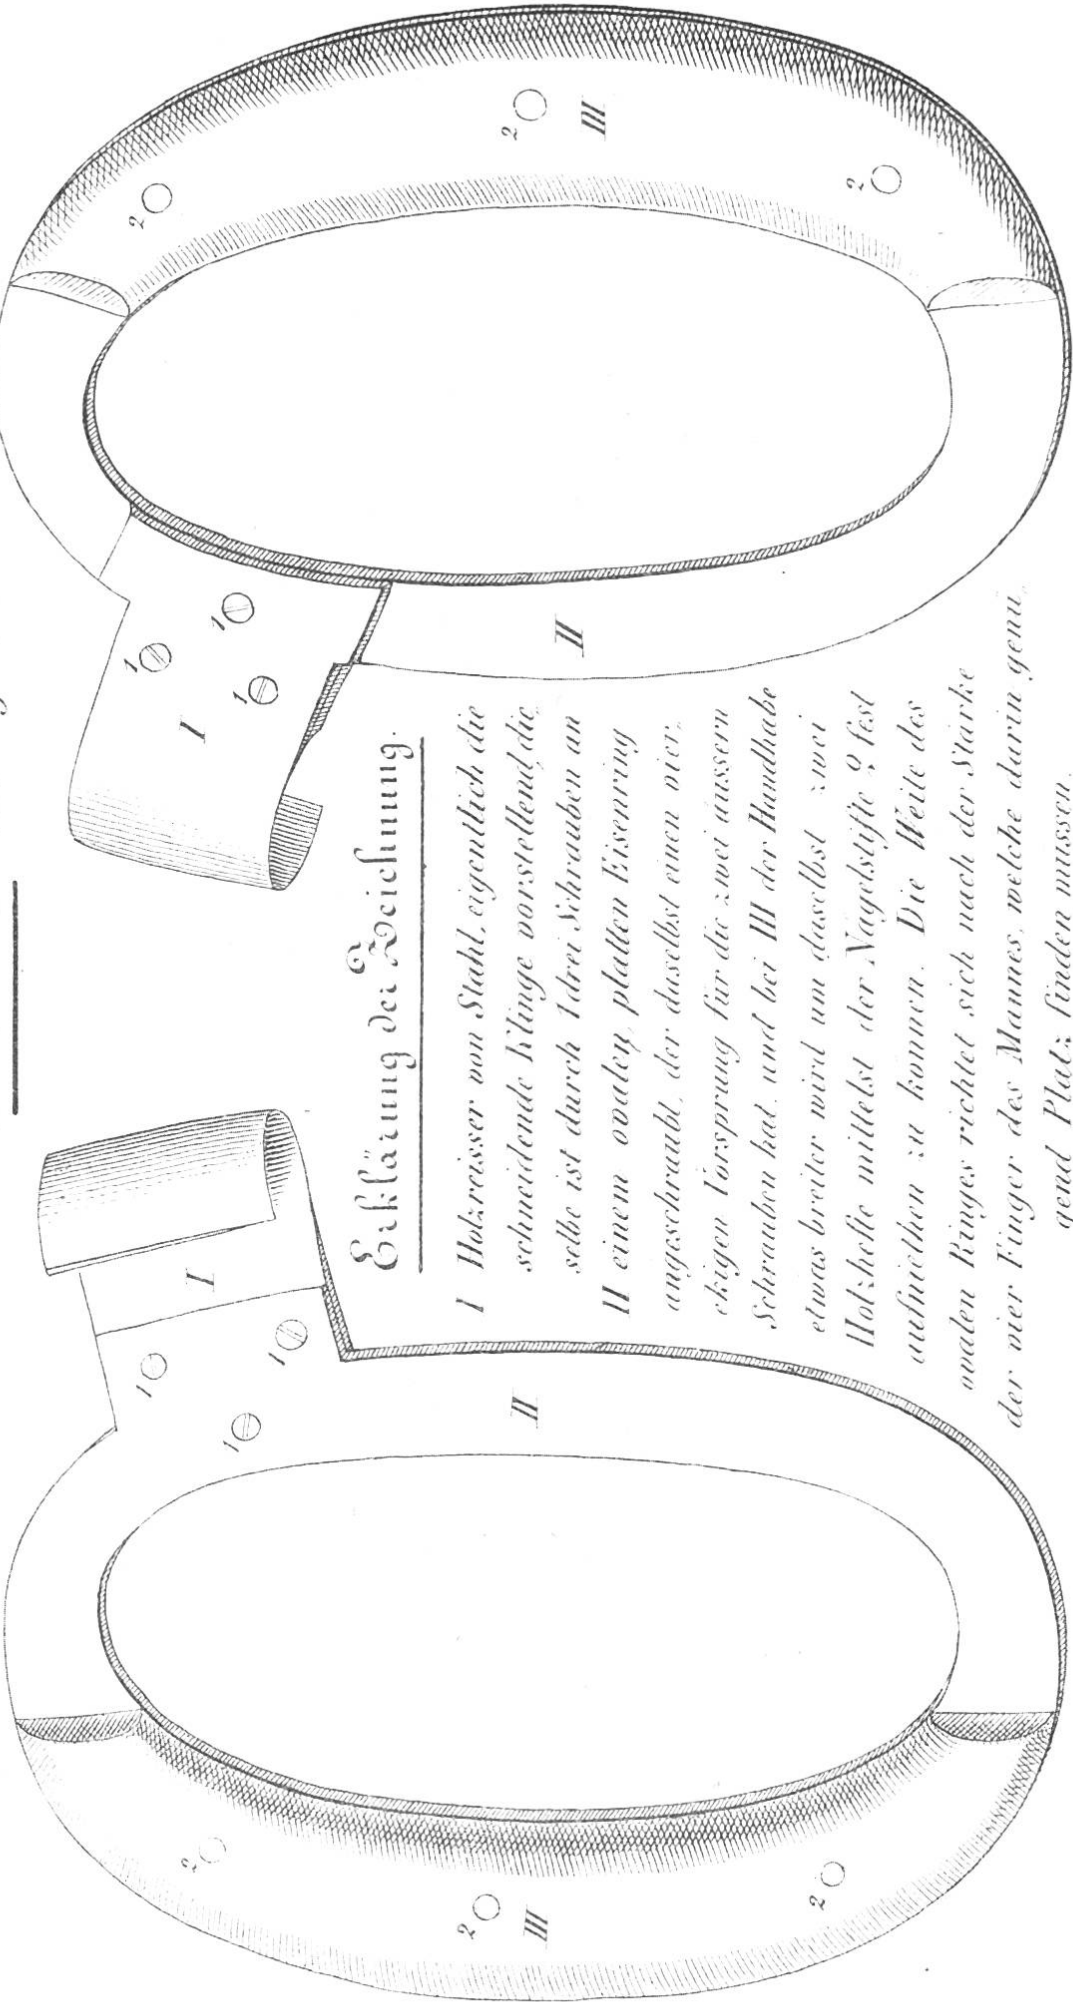 Erklärung der Zeichnung.
I Holzreisser von Stahl, eigentlich die
schneidende Klinge vorstellend, die
selbe ist durch 1 drei Schrauben an
II einem ovalen, platten Eisenring
angeschraubt, der daselbst einen vier,
ekigen Vorsprung für die zwei äussern
Schrauben hat, und bei III der Handhabe
etwas breiter wird um daselbst zwei
Holzhefte mittelst der Nagelstifte 2 fest
aufniethen zu können. Die Weite des
ovalen Ringes richtet sich nach der Stärke
der vier Finger des Mannes, welche darin genü,
gend Platz finden müssen.
I
1
1
1
II
2
2
III
2
I
1
1
1
II
2
2
III
2